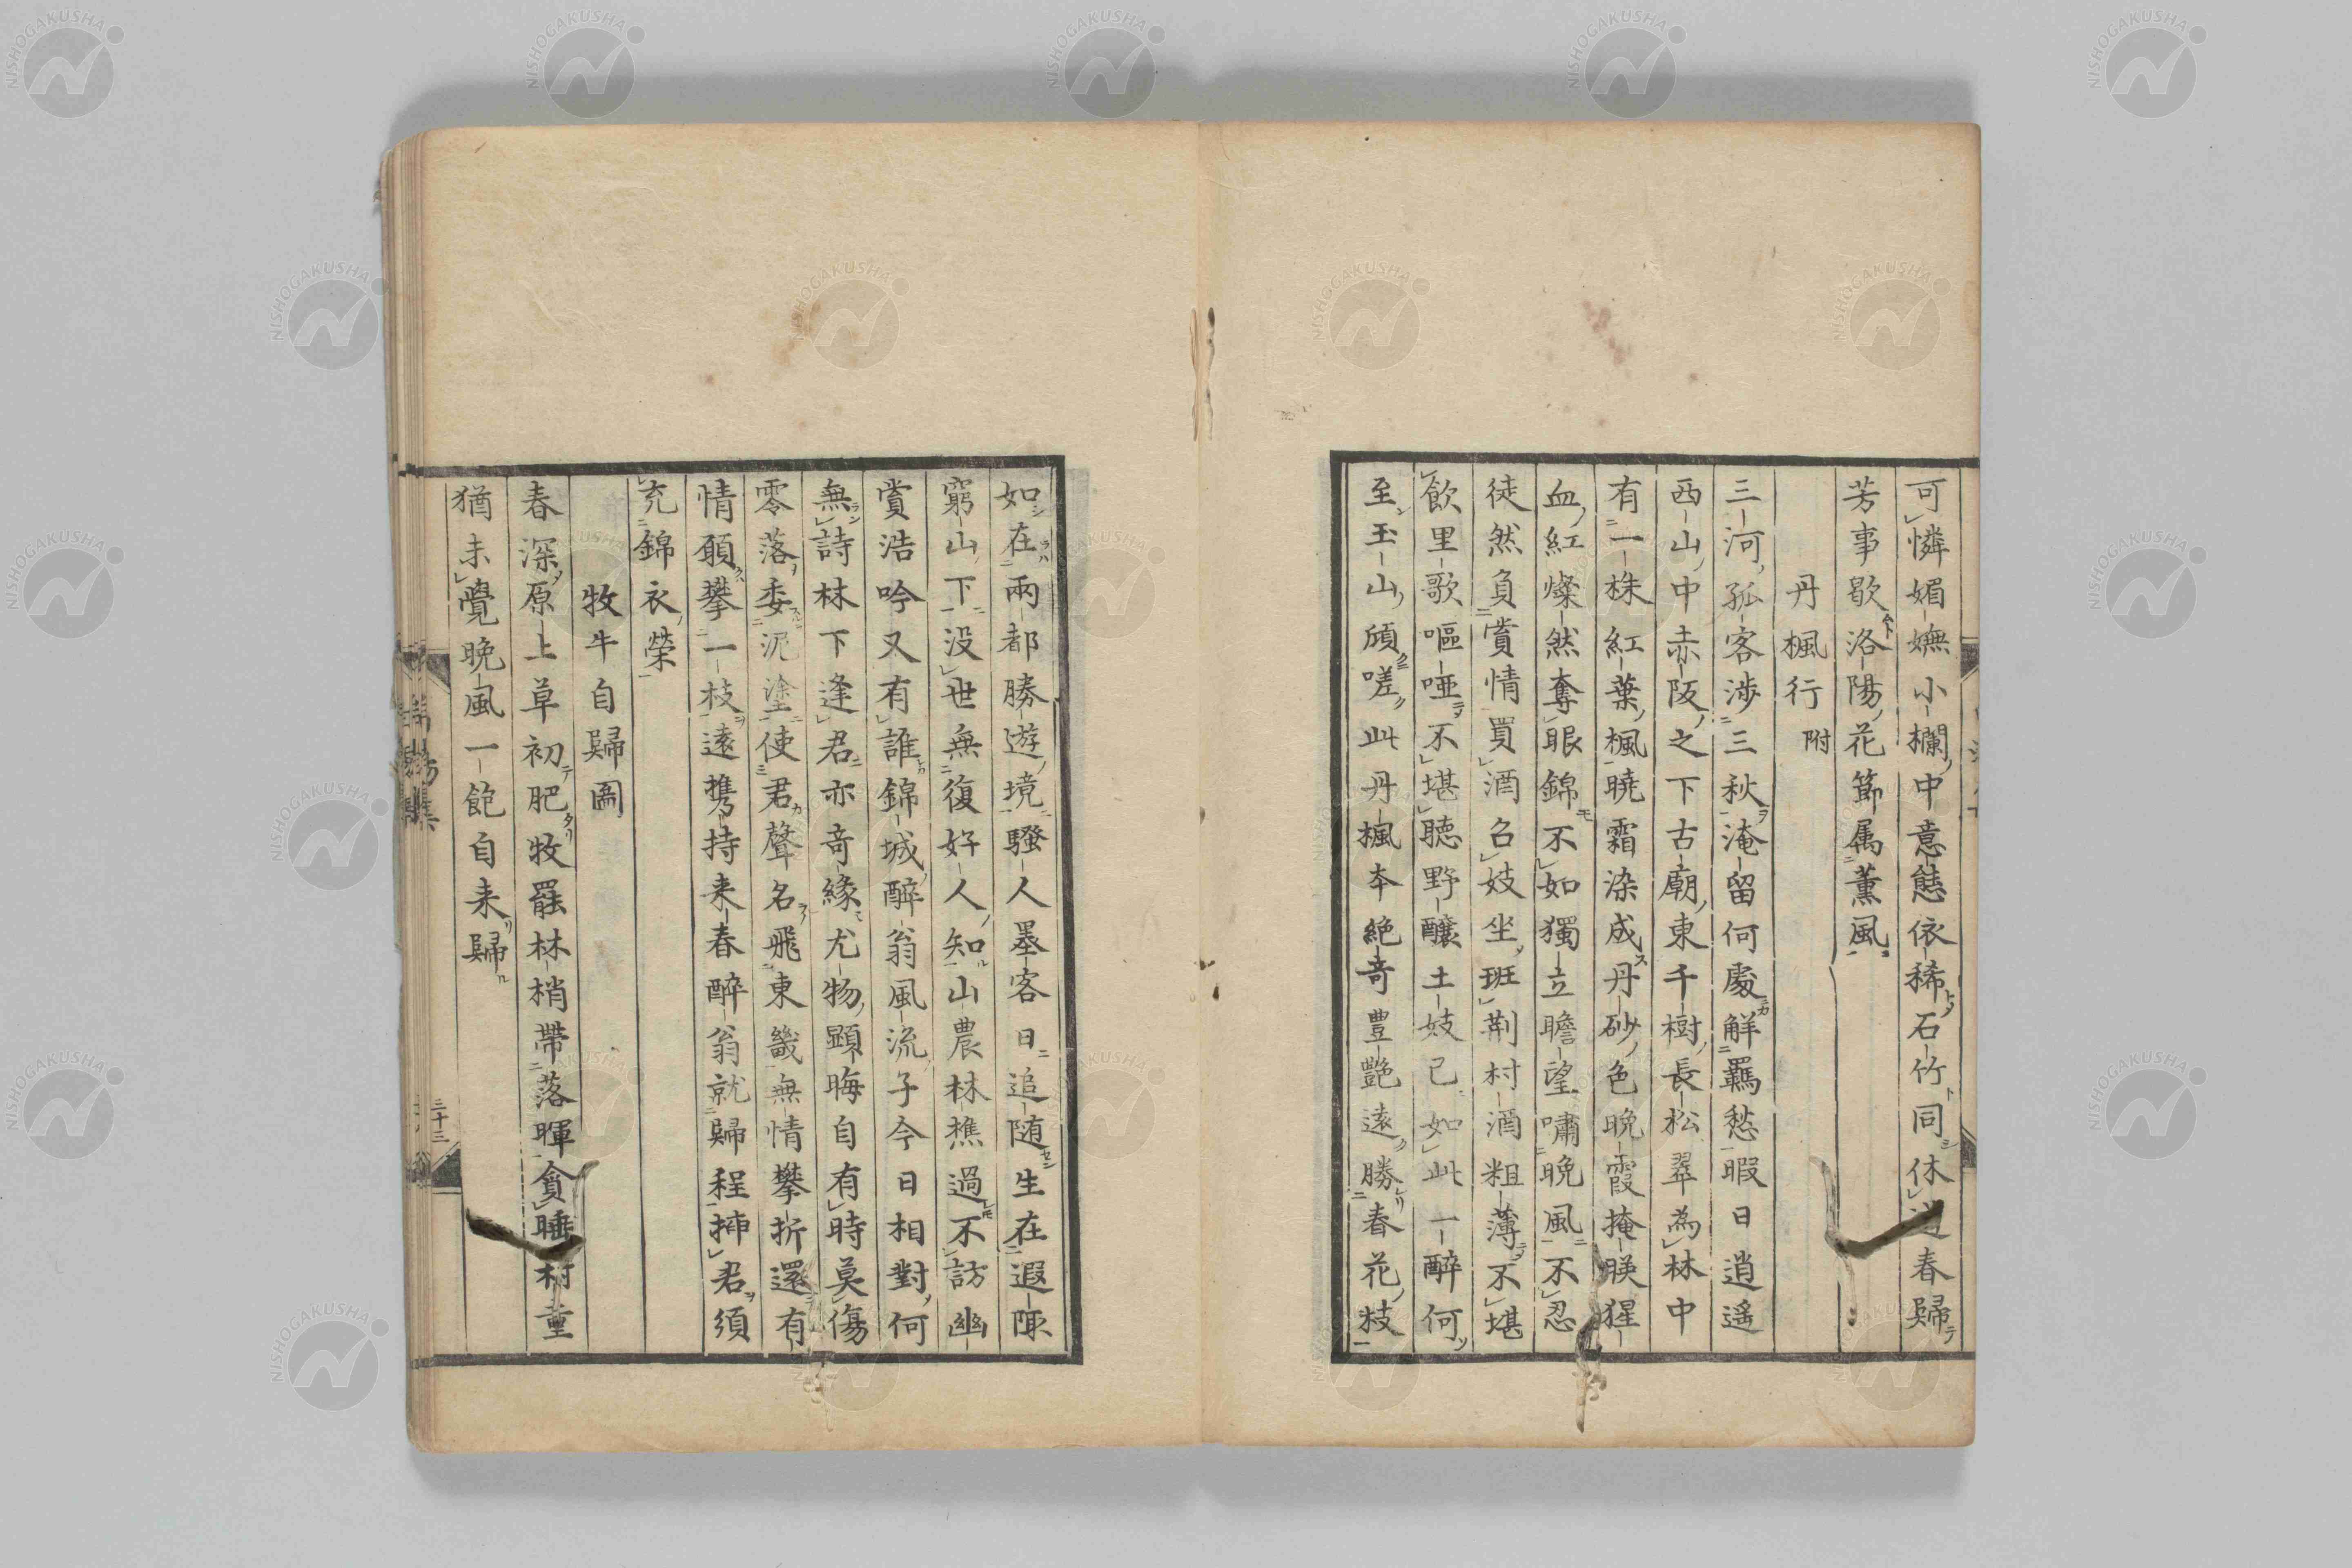 可憐媚嫵小欄中意態依稀石竹同休道春歸
芳事歇洛陽花節属薫風
丹楓行附
三河孤客渉三秋淹留何處解羈愁暇日逍遥
西山中赤阪之下古廟東千樹長松翠為林中
有一株紅葉楓曉霜染成丹砂色晩霞掩映猩
血紅燦然奪眼錦不如獨立瞻望嘯晩風不忍
徒然負賞情買酒名妓坐班荆村酒粗薄不堪
飲里歌嘔啞不堪聴野醸土妓已如此一醉何
至玉山頎嗟此丹楓本絶奇豊艶遠勝春花枝
如在兩都勝遊境騷人墨客日追随生在遐陬
窮山下没世無復好人知山農林樵過不訪幽
賞浩吟又有誰錦城醉翁風流子今日相對何
無詩林下逢君亦奇緣尤物顕晦自有時莫傷
零落委泥塗使君聲名飛東畿無情攀折還有
情願攀一枝遠携持来春醉翁就歸程挿君須
充錦衣榮
牧牛自歸圖
春深原上草初肥牧罷林梢帶落暉貪睡村童
猶未覺晩風一飽自来歸
二十三
NISHOGAKUSHA